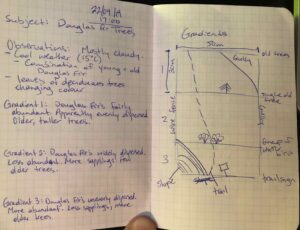 22/09/19
17:00
Subject: Douglas Fir Trees
Observations: Mostly cloudy.
- Cool weather (15°C)
- Combination of young + old
Douglas Firs
- leaves of deciduous trees
changing colour
Gradient 1: Douglas Firs fairly
abundant. Apparently evenly dispersed
Older, taller trees.
Gradient 2: Douglas Firs widely dispersed.
Less abundant. More sapplings, few
older trees.
Gradient 3: Douglas Firs unevenly dispersed.
More abundant. Less sapplings, more
older trees.
Gradients
50m
old trees
Gully
1
2
3
wire fence
Gully
slope
trail
trail sign